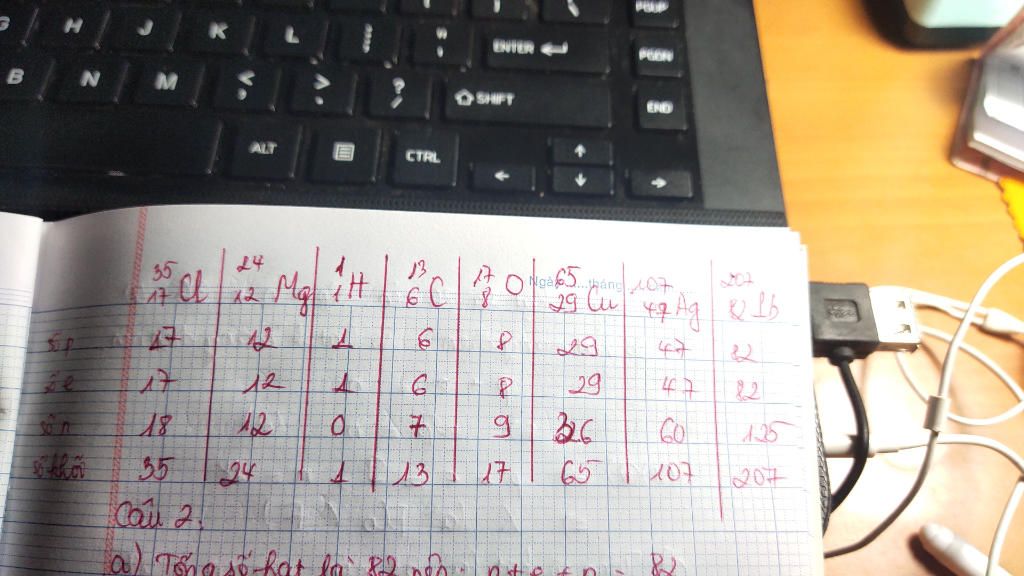 PGUP
G H J K L : ; " ' ENTER PGDN
B N M < , > . ? / SHIFT END
ALT CTRL
Ngày...tháng
35 17 Cl 24 12 Mg 1 1 H 13 6 C 17 8 O 65 29 Cu 107 47 Ag 207 82 Pb
số p 17 12 1 6 8 29 47 82
số e 17 12 1 6 8 29 47 82
số n 18 12 0 7 9 36 60 125
số khối 35 24 1 13 17 65 107 207
Câu 2.
a) Tổng số hạt là 82 nên: p + e + n = 82